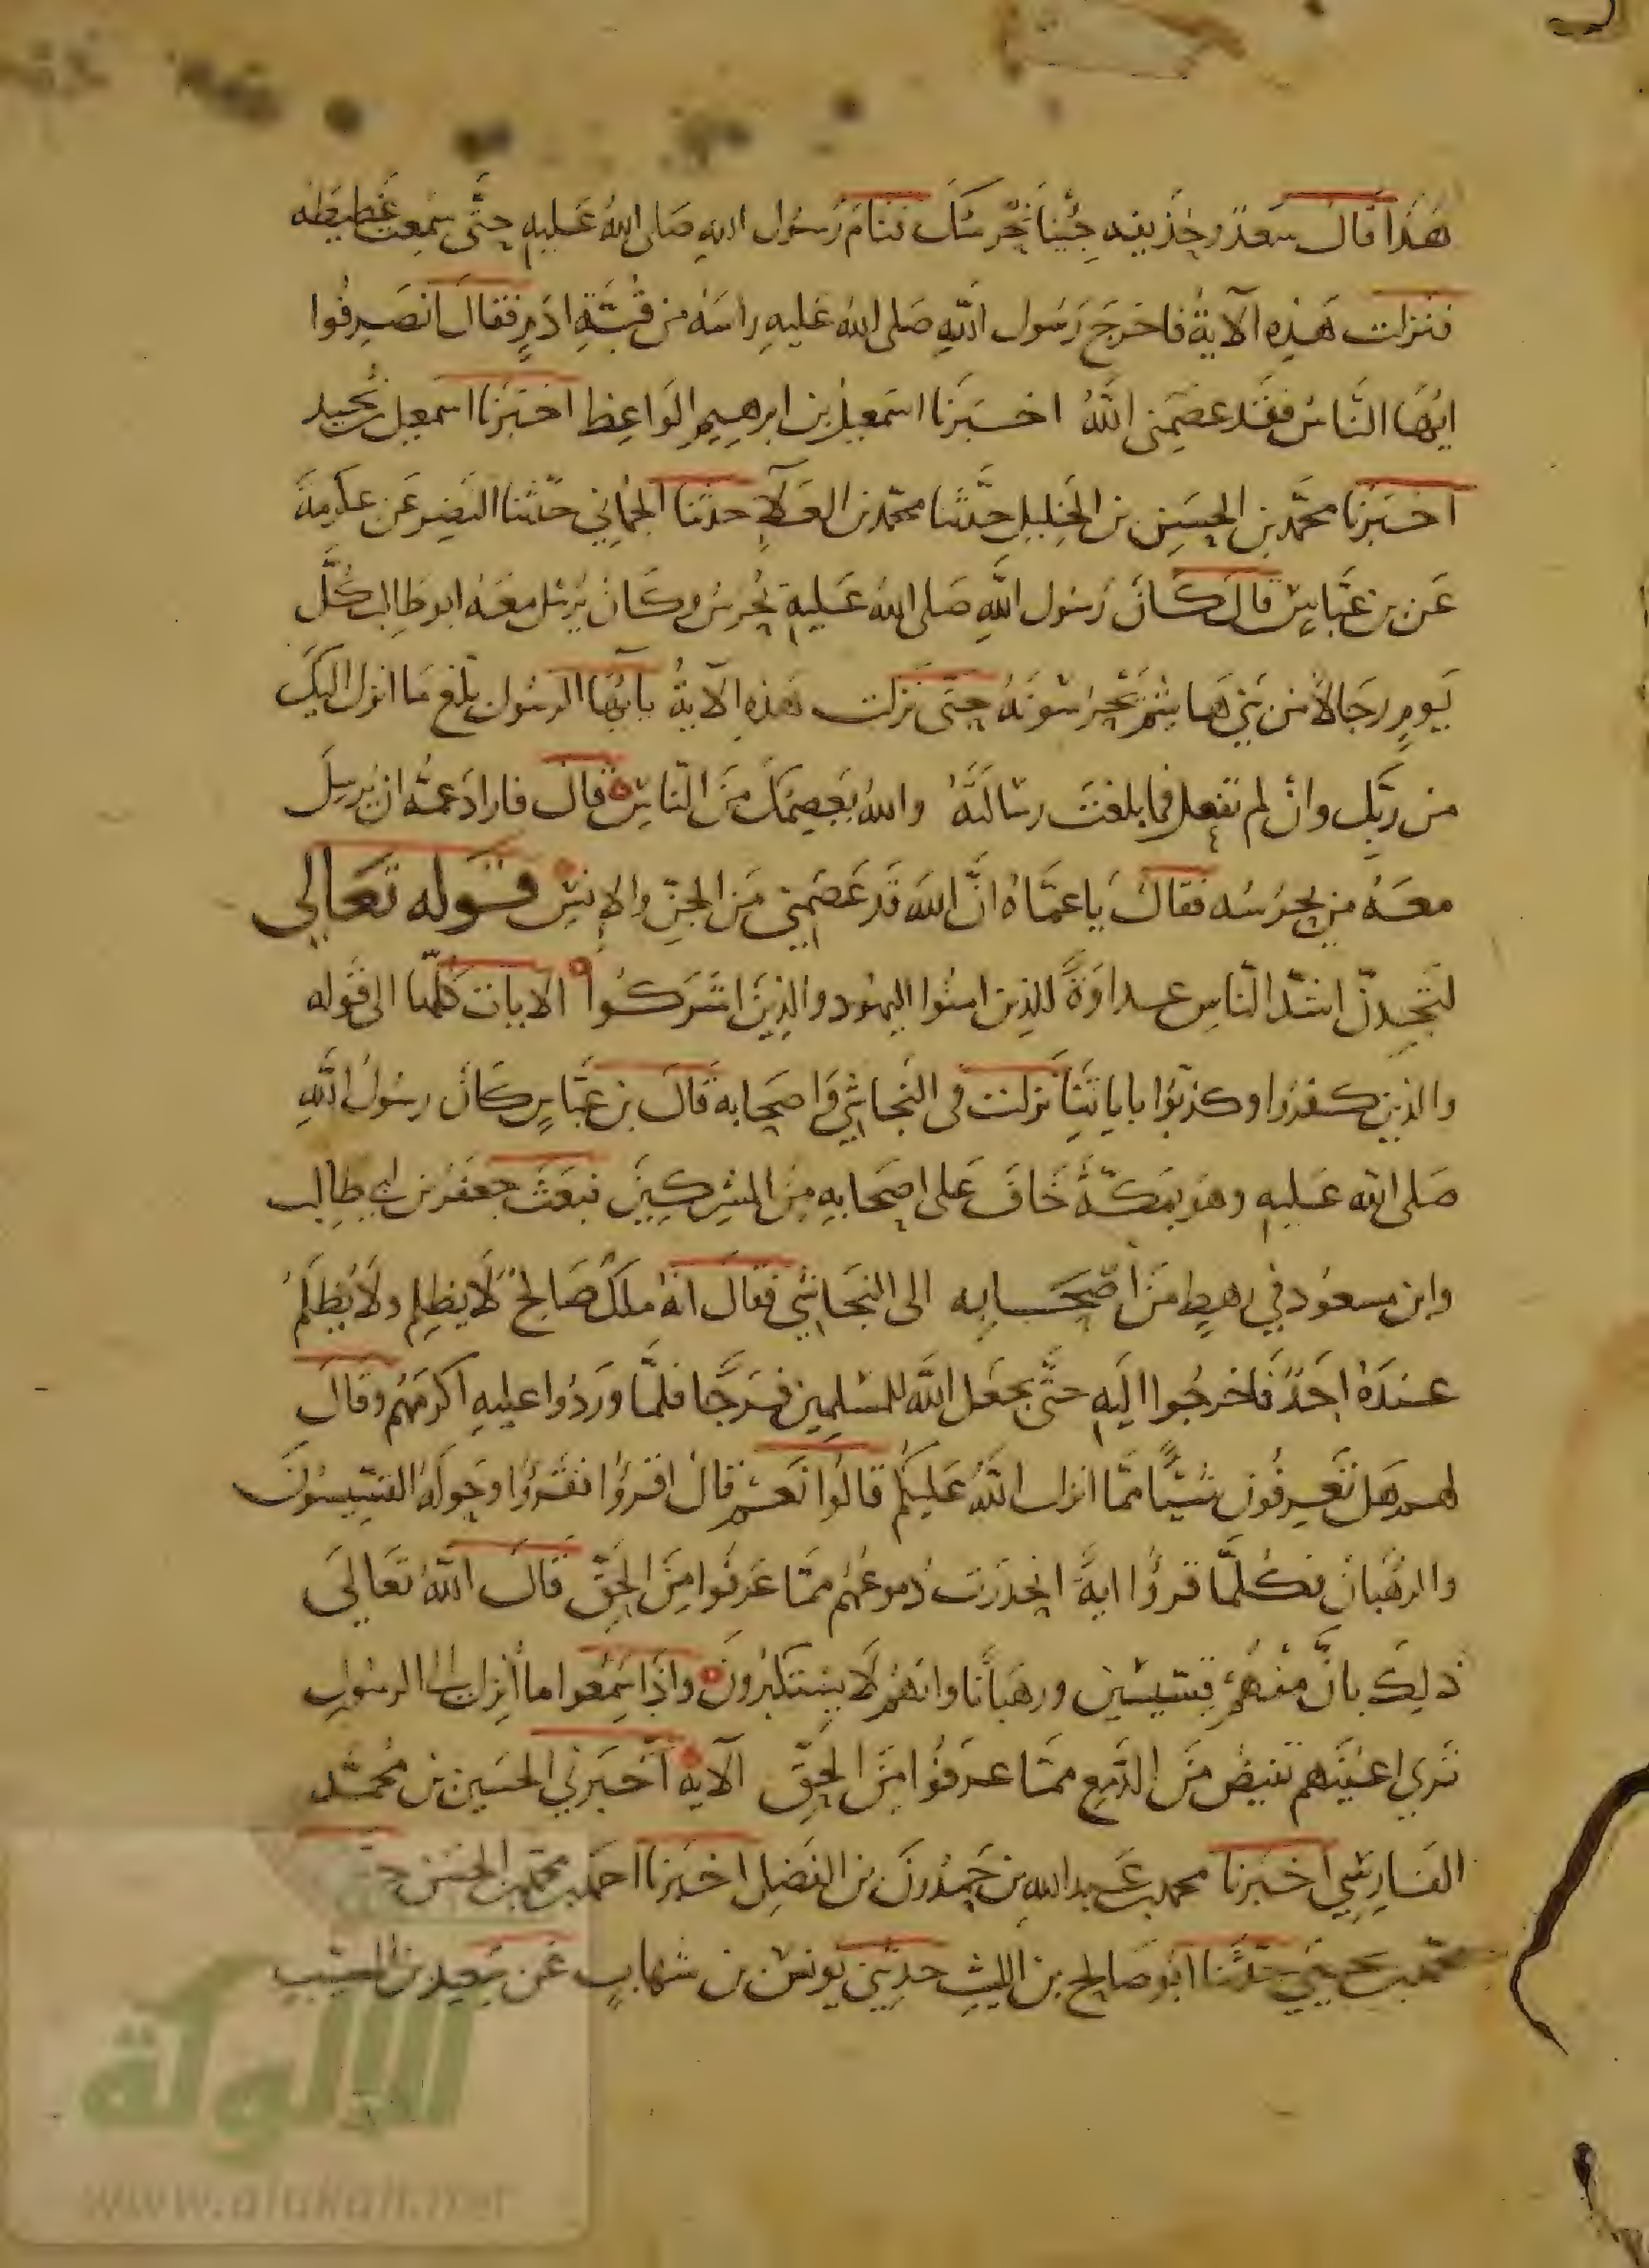 هَذَا قَالَ سَعدٌ وحُذَيفه جِئنا نَحرسُكَ فنَامَ رَسُول اللهِ صَلى اللهُ عَليهِ حتَّى سَمِعت غَطيطَه
فنزلت هَذِه الآيةُ فاخرَجَ رَسُول اللهِ صَلى اللهُ عَليهِ رَاسَهُ من قُبَّةِ ادَمٍ فقالَ انصَرِفُوا
ايُّها النَّاسُ فقَد عصَمَني اللَّهُ اخبَرَنا اسَمعِيل بن ابرهيم الوَاعِظ اخبَرَنا اسمعيل بن نُجيد
اخبَرنا محمَّد بن الحسَين بن الخليلِ حدَّثَنا محمَّد بن العَلآءِ حدثَنا الحِمَّاني حدّثنا النَضر عَن عكرمةَ
عَن بن عَبَّاسٍ قالَ كَانَ رَسُول اللَّهِ صَلى اللهُ عَليهِ يُحرسُ وكَانَ يُرسِل معَهُ ابو طالِب كُلَّ
يَومٍ رجَالاً من بَني هَاشِم يَحرُسُونَهُ حتّى نَزلت هَذِه الآيةُ يأيُّها الرسُول بلّغ مَا انزل اليكَ
من ربِّك وانْ لم تفعل فما بلغتَ رسَالتَهُ واللهُ يَعصِمُكَ مِنَ النّاسِ قالَ فارادَ عمُّه ان يُرسِلَ
معَهُ من يحرُسُه فقالَ يَا عمَّاهُ انَّ اللهَ قَد عَصَمِني مِنَ الجنِّ والإنسِ قوله تَعَالى
لتَجِدنّ اشدَّ النّاسِ عداوَةً للذِين امنُوا اليهُود والذِينَ اشرَكُوا الايات كُلّها الى قَوله
والذين كفرُوا وكذبُوا باياتِنا نزلت في النجَاشي وَاصحَابه قالَ بن عبَّاسٍ كَانَ رسُولُ اللَّهِ
صَلى الله عَليهِ وهوَ بمكّةَ خَافَ عَلى اصحَابهِ مِنَ المشركِينَ فبعَثَ جعفَر بن ابي طالِب
وابن مسعُود في رهطٍ مِنَ اصْحَابِه الى النجَاشي فقالَ انهُ ملكٌ صَالحٌ لَا يظلِم ولَا يُظلَمُ
عندَهُ احَدٌ فَاخرجُوا اليَهِ حتَّى يجعَل اللَّه للمسْلمِين فَرَجًا فلمَّا ورَدُوا عليهِ اكرَمَهُم وقالَ
لهم هَل تَعرِفُون شيئًا ممّا انزل اللَّهُ عَليكُم قالُوا نَعَم قالَ اقرؤُا فقَرؤُا وحَولَهُ القسّيسُونَ
والرهُبان فكُلمَّا قرؤُا ايةً انحدَرَت دُموعُهُم ممّا عَرفُوا مِنَ الحَقِّ قالَ اللهُ تعَالَى
ذلِكَ بانَّ منْهُمْ قسّيسْين ورهبَانًا وانهُم لَا يستَكبرُونَ وَاذَا سَمِعُوا ما أُنزل الى الرسُولِ
تَري اعينَهم تفيضُ مِنَ الدَّمع ممّا عرَفوُا مِنَ الحقِّ الآيه اخبَرني الحسَين بن محُمَّد
الفَارِسِي اخبَرنا محمد بن عَبد الله بن حَمدُونَ بن الفَضل اخبَرنا احمد بن محمّد بن الحسَن
محمّد بن يحيَي حدَّثَنا ابُو صَالح بن الليثِ حدثِني يونسْ بن شهابٍ عَن سَعيد بن المسيّبِ
للألوكة
www.alukah.net